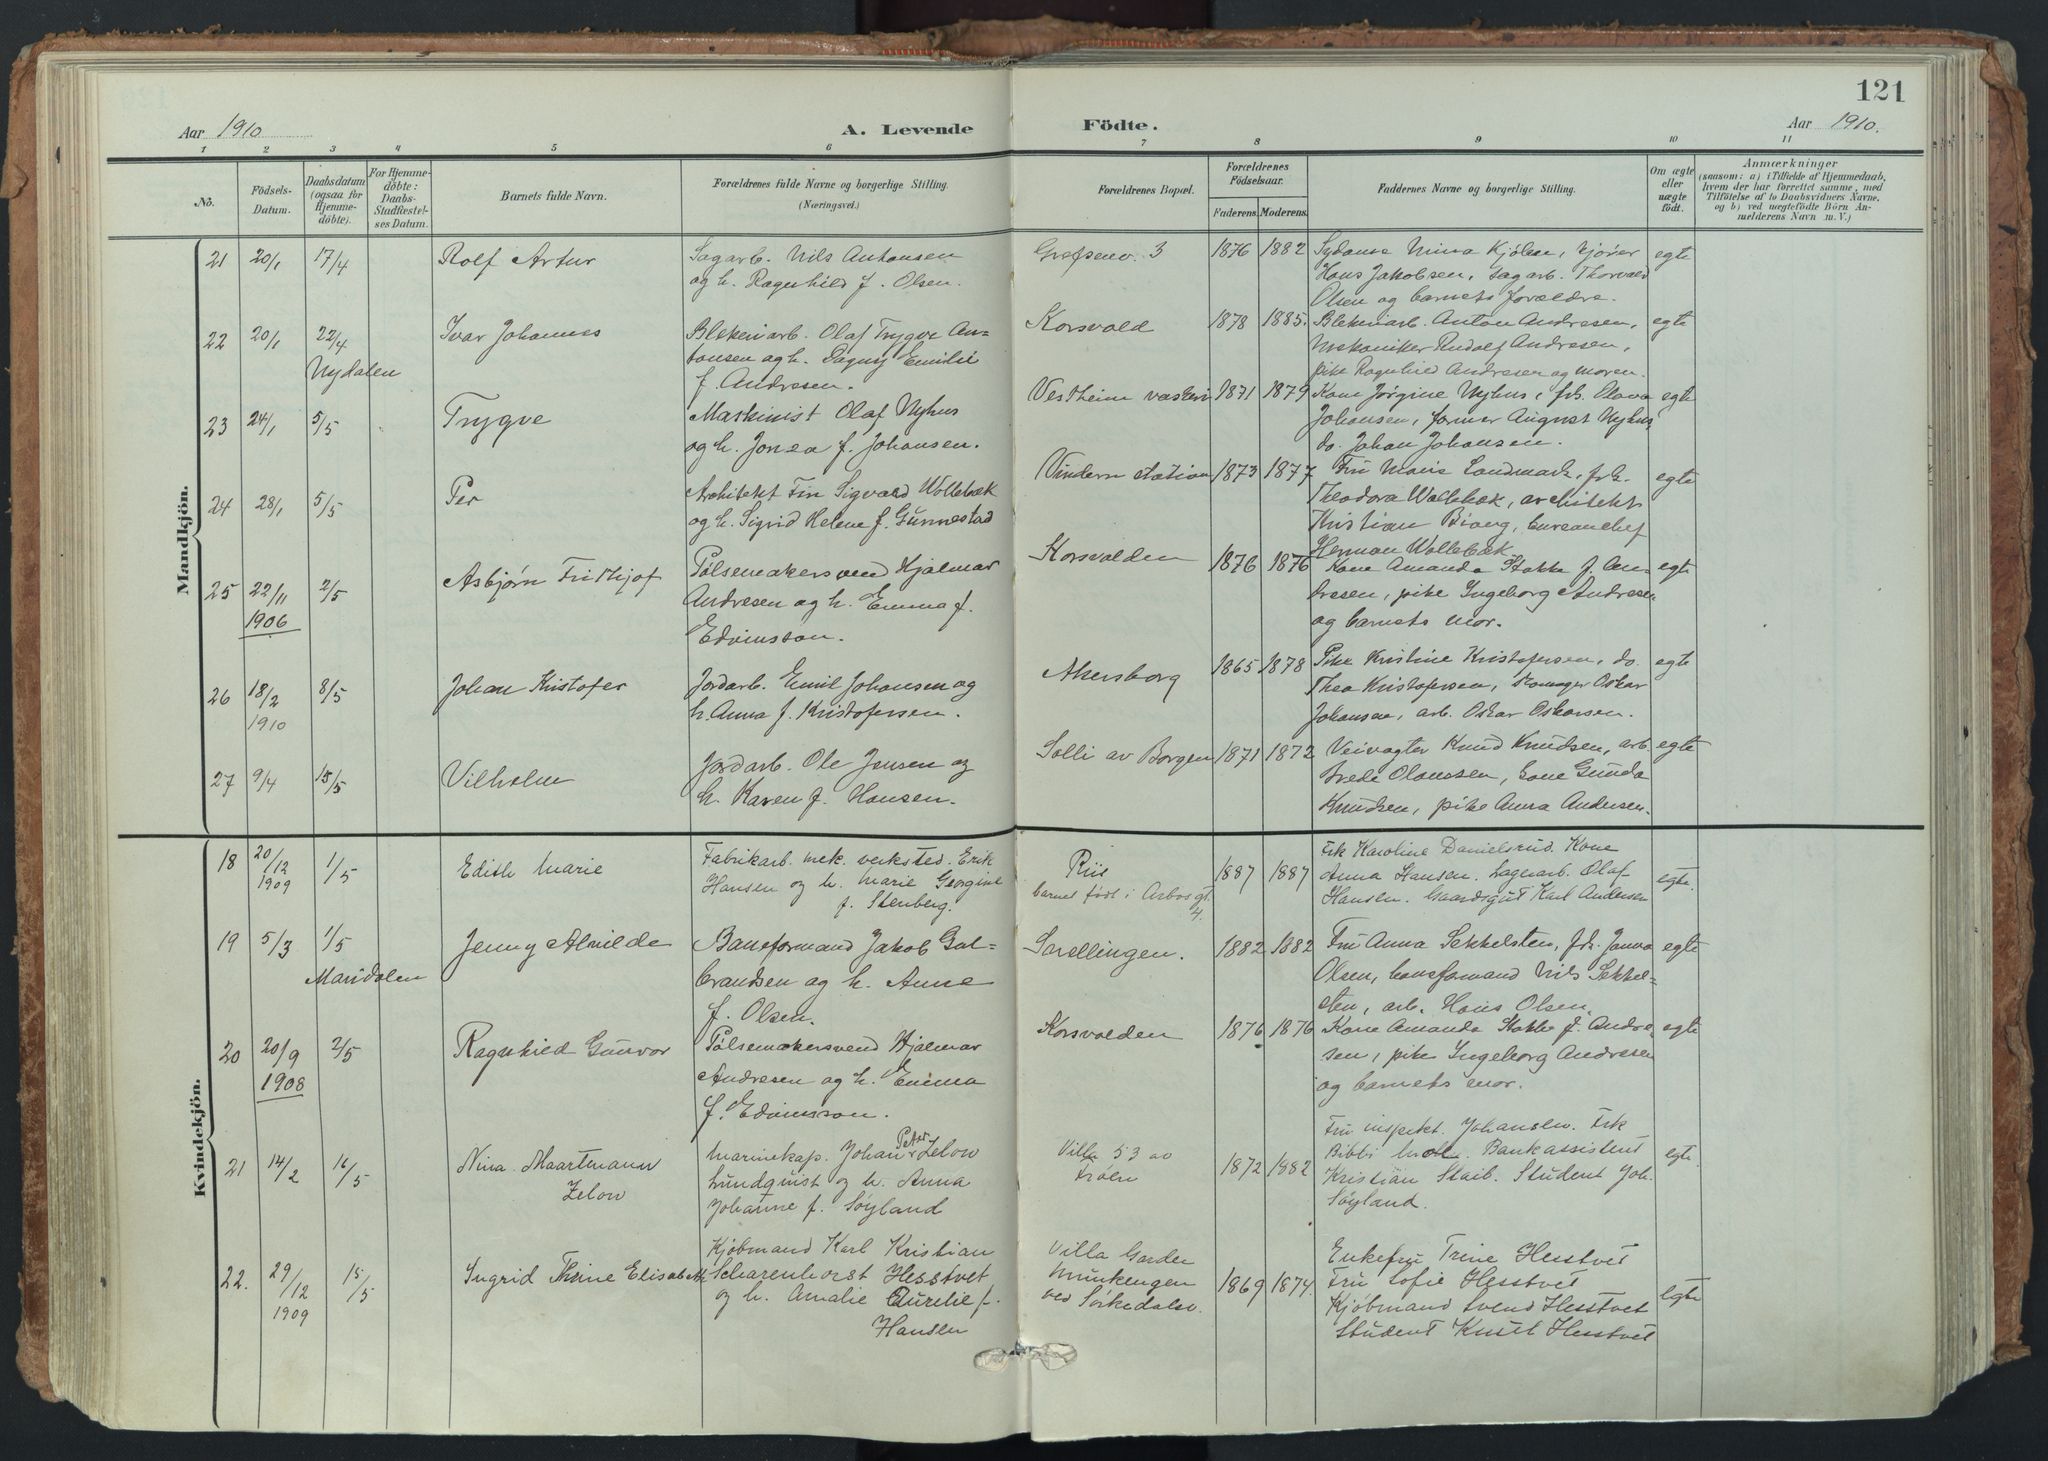 121
Aar 1910
A. Levende Födte.
Aar 1910.
1 2 3 4 5 6 7 8 9 10 11
No.
Födsels-Datum.
Daabsdatum (ogsaa for Hjemmedöbte).
For Hjemmedöbte: Daabs-Stadfæstelses Datum.
Barnets fulde Navn.
Forældrenes fulde Navne og borgerlige Stilling.
(Næringsvei.)
Forældrenes Bopæl.
Forældrenes Födselsaar.
Faderens. Moderens.
Faddernes Navne og borgerlige Stilling.
Om ægte eller uægte födt.
Anmærkninger
(saasom: a) i Tilfælde af Hjemmedaab, hvem der har forrettet samme, med Tilföielse af to Daabsvidners Navne, og b) ved uægtefödte Börn Anmelderens Navn m. V.)
Mandkjön.
21 20/1 17/4 Rolf Artur
Sagarb. Nils Antonsen
og h. Ragnhild f. Olsen.
Grefsenv. 3 1876 1882
Sydame Mina Kjölsen, kjører
Hans Jakobsen, Sagarb. Thorvald
Olsen og barnets forældre.
egte
22 20/1 22/4 Nydalen Ivar Johannes
Blekeriarb. Olaf Trygve An-
tonsen og h. Dagny Emilie
f. Andresen.
Korsvold 1878 1885.
Blekeriarb. Anton Andresen,
Mekaniker Rudolf Andresen,
pike Ragnhild Andresen og moren.
egte
23 24/1 5/5 Trygve
Maskinist Olaf Nyhus
og h. Jonea f. Johansen.
Vestheim vaskeri 1871 1879
Kone Jørgine Nyhus, frk. Olava
Johansen, former August Nyhus,
do. Johan Johansen.
egte
24 28/1 5/5 Per
Architekt Fin Sigvald Wollebæk
og h. Sigrid Helene f. Gunnestad
Vindern station 1873 1877
Fru Marie Landmark, frk.
Theodora Wollebæk, architekt
Kristian Biong, bureauchef
Herman Wollebæk.
egte
25 22/11 1906 2/5 Asbjørn Frithjof
Pølsemakersvend Hjalmar
Andresen og h. Emma f.
Edvinsson.
Korsvolden 1876 1876
Kone Amanda Stokke f. An-
dresen, pike Ingeborg Andresen
og barnets mor.
egte
26 18/2 1910 8/5 Johan Kristofer
Jordarb. Emil Johansen og
h. Anna f. Kristofersen.
Akersborg 1865 1878
Pike Kristine Kristofersen, do.
Thea Kristofersen, Oskar
Johansen, arb. Oskar Oskarsen.
egte
27 9/4 15/5 Vilhelm
Jordarb. Ole Jensen og
h. Karen f. Hansen.
Solli av Borgen 1871 1872
Veivogter Knud Knudsen, arb.
Brede Olaussen, kone Gunda
Knudsen, pike Anna Andersen.
egte
Kvindekjön.
18 20/12 1909 1/5 Edith Marie
Fabrikarb. mek. verksted. Erik
Hansen og h. Marie Georgine
f. Stenberg.
Riis
barnet født i Arbosgt. 4.
1887 1887
Frk Karoline Danielsrud. Kone
Anna Hansen. Lagerarb. Olaf
Hansen. Gaardsgut Karl Andersen
egte.
19 5/3 1/5 Maridalen Jenny Alvilde
Baneformand Jakob Gul-
brandsen og h. Anne
f. Olsen.
Snellingen. 1882 1882
Fru Anna Sekkelsten, frk. Janna
Olsen, baneformand Nils Sekkel-
sten, arb. Hans Olsen.
egte
20 20/9 1908 2/5 Ragnhild Gunvor
Pølsemakersvend Hjalmar
Andresen og h. Emma
f. Edvinsson.
Korsvolden 1876 1876
Kone Amanda Stokke f. Andre-
sen, pike Ingeborg Andresen
og barnets mor.
egte
21 14/2 16/5 Nina Maartmann
Zelow
Marinekap. Johan Peter Zelow
Lundquist og h. Anna
Johanne f. Søyland
Villa 53 av
Frøen
1872 1882
Fru inspekt. Johansen. Frk
Bibbi. Bankassistent
Kristian Staib. Student Joh.
Søyland.
egte.
22. 29/12 1909 15/5 Ingrid Thrine Elisabeth
Kjøbmand Karl Kristian
Scharenhorst Hesstvet
og h. Amalie Aurelie f.
Hansen
Villa Garden
Munkengen
ved Sørkedalsv.
1869 1874.
Enkefru Trine Hesstvet
Fru Sofie Hesstvet
Kjøbmand Svend Hesstvet
Student Knut Hesstvet
egte